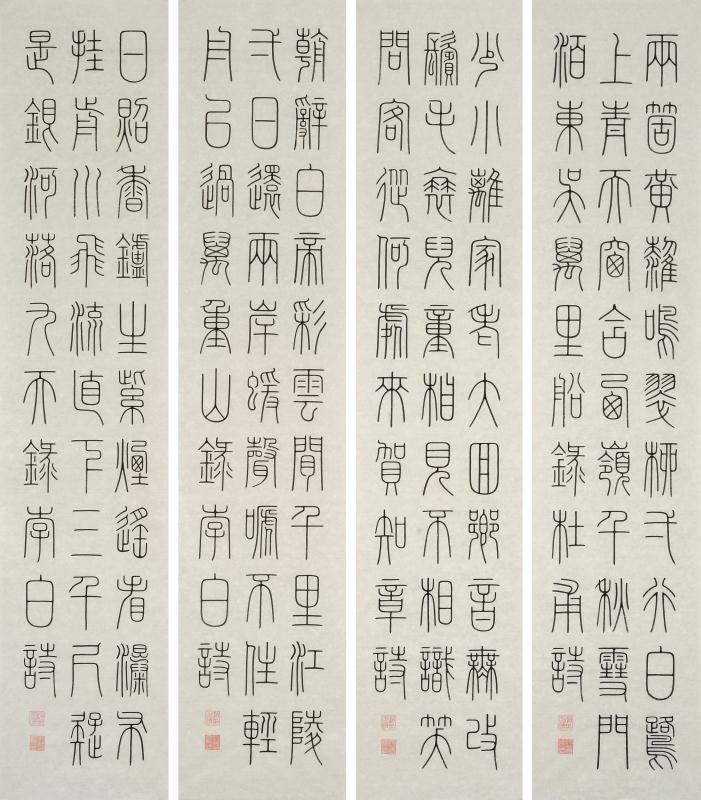 兩箇黃鸝鳴翠柳弌行白鷺
上青天窗含西嶺千秋雪門
泊東吳萬里船錄杜甫詩
少小離家老大回鄉音無改
鬢毛衰兒童相見不相識笑
問客從何處來賀知章詩
朝辭白帝彩雲間千里江陵
弌日還兩岸蝯聲嗁不住輕
舟已過萬重山錄李白詩
日照香鑪生紫煙遙看瀑布
挂前川飛流直下三千尺疑
是銀河落九天錄李白詩